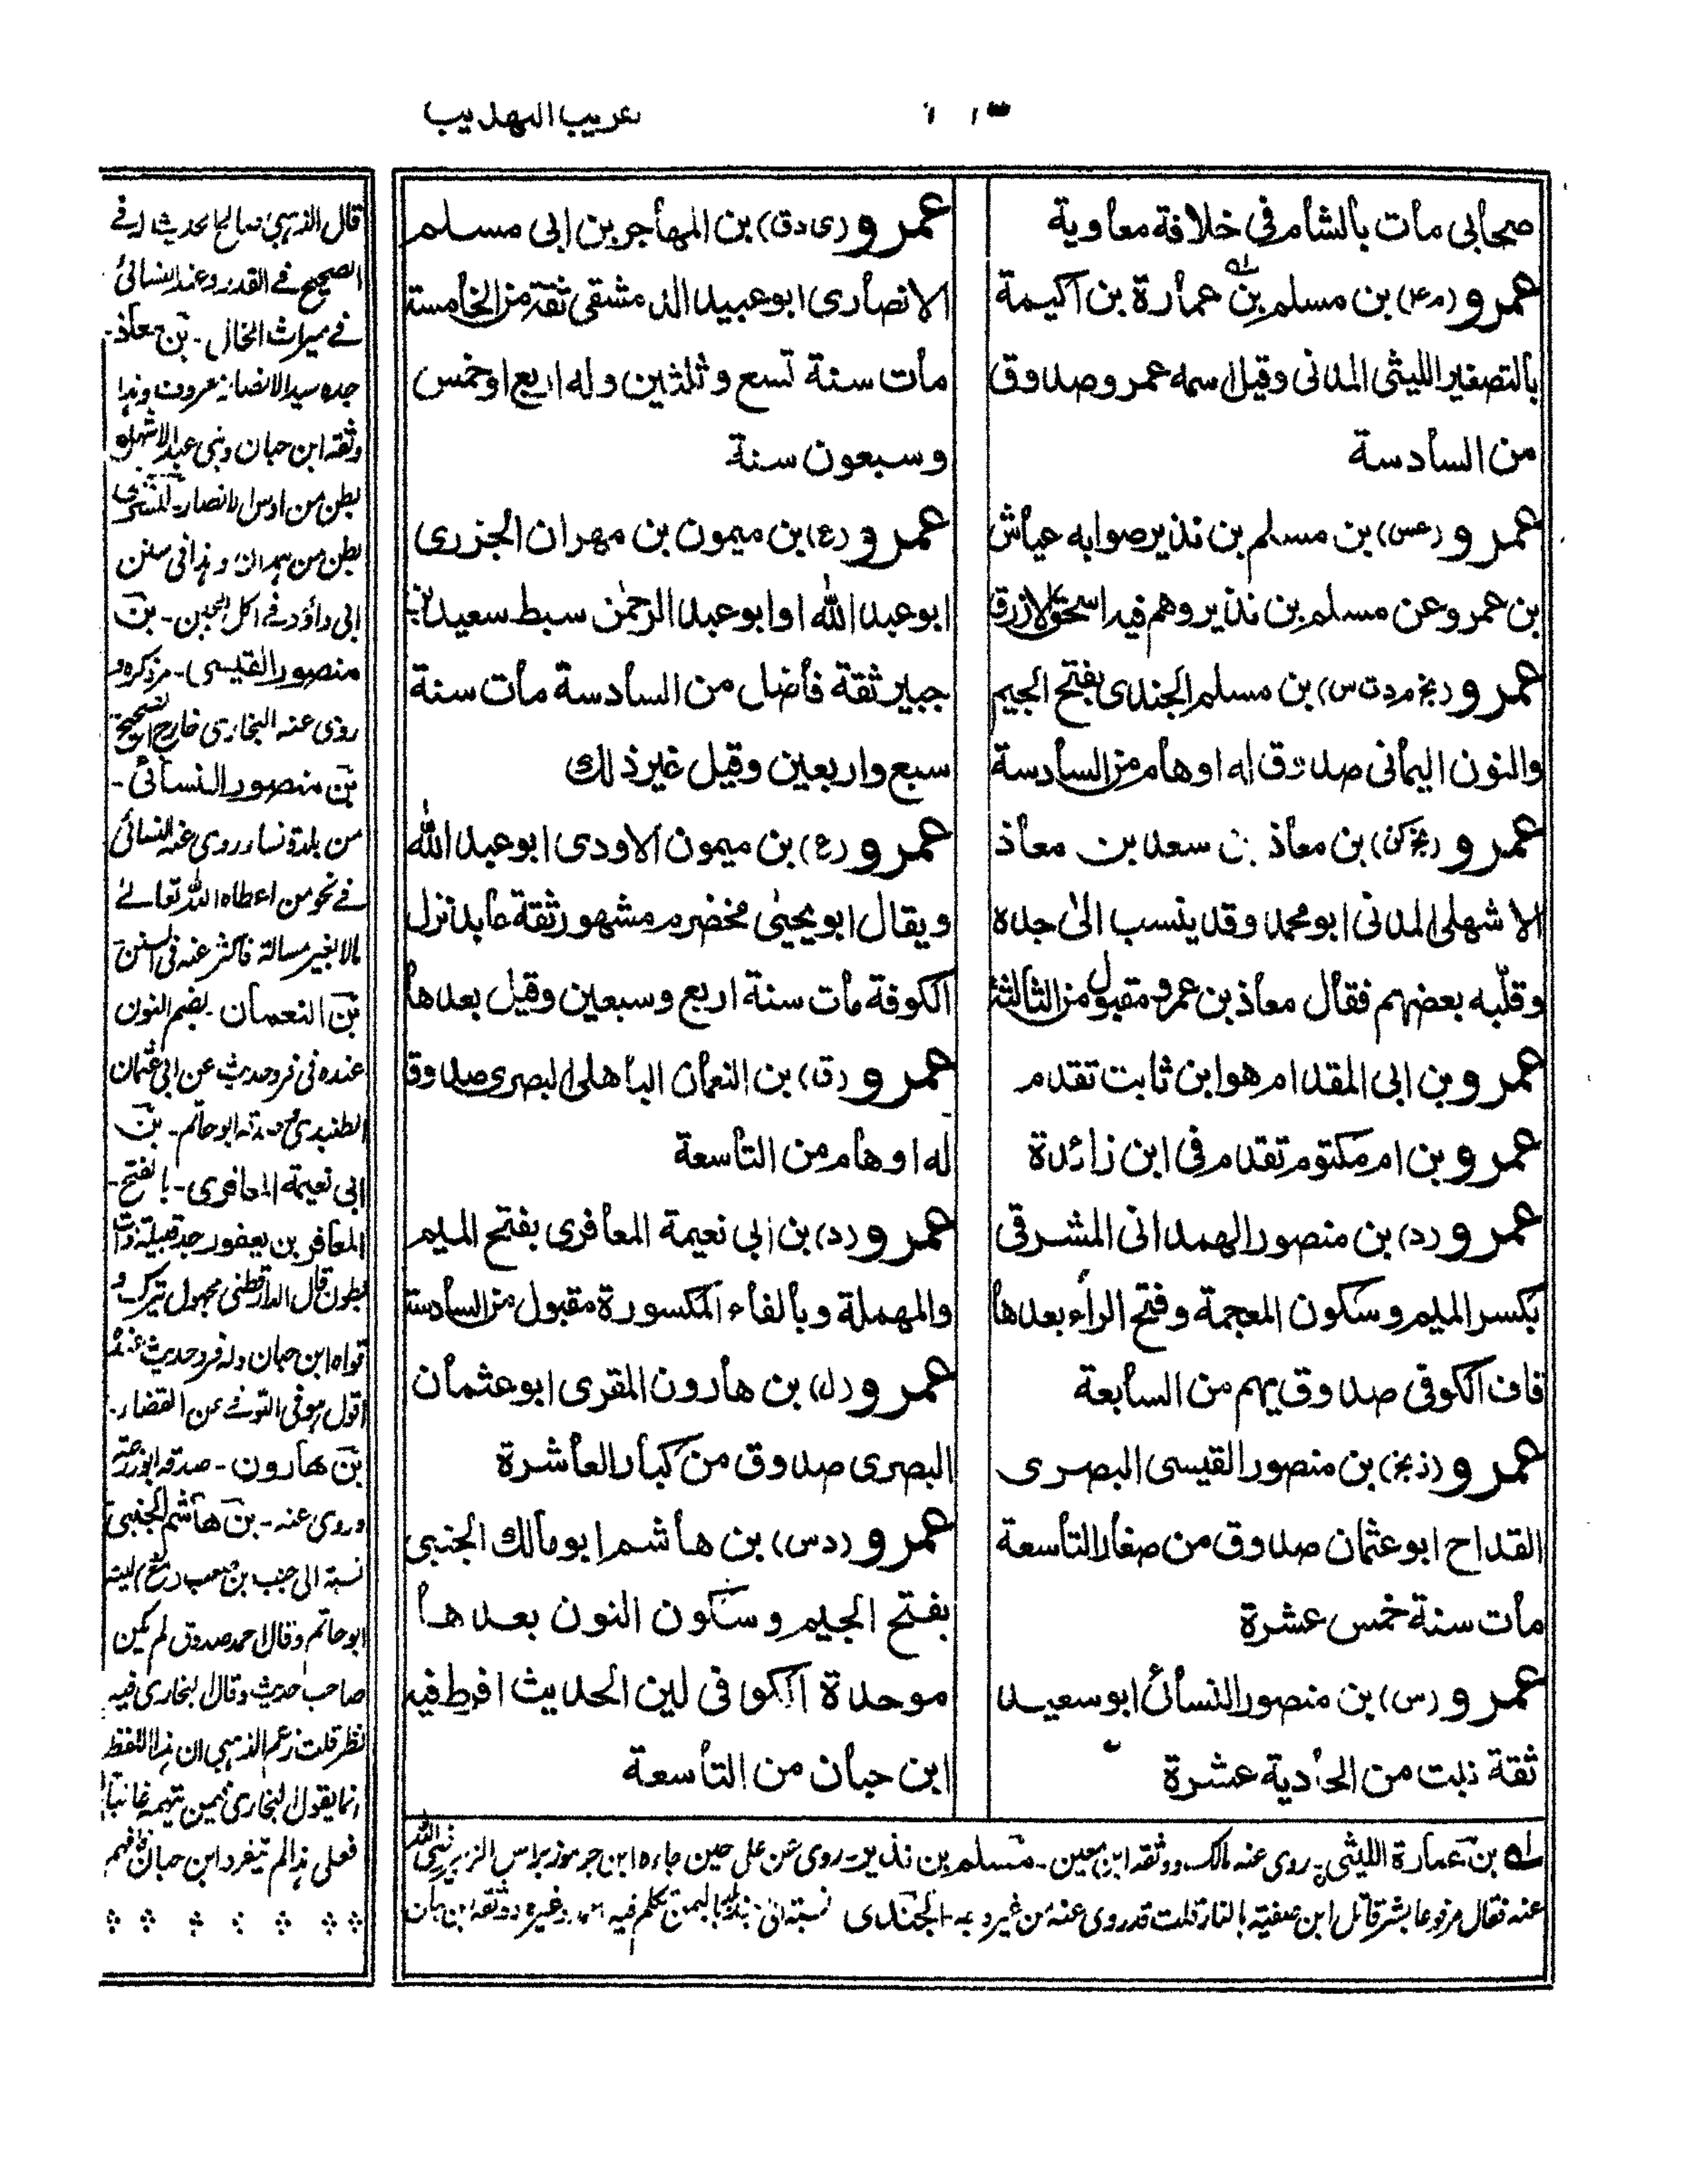 تقريب التهذيب
صحابى مات بالشام فى خلافة معاوية
عمرو (م ع) بن مسلم بن عمارة بن اكيمة
بالتصغير الليثى المدنى وقيل اسمه عمر وصدوق
من السادسة
عمرو (عس) بن مسلم بن نذير صوابه عياش
بن عمرو عن مسلم بن نذير وهم فيه اسحق الازرق
عمرو (بخ م د ت س) بن مسلم الجندى بفتح الجيم
والنون اليمانى صدوق له اوهام من السادسة
عمرو (بخ كن) بن معاذ بن سعد بن معاذ
الاشهلى المدنى ابو محمد وقد ينسب الى جده
وقلبه بعضهم فقال معاذ بن عمرو مقبول من الثالثة
عمرو بن ابى المقدام هو ابن ثابت تقدم
عمرو بن ام مكتوم تقدم فى ابن زائدة
عمرو (د) بن منصور الهمدانى المشرقى
بكسر الميم وسكون المعجمة وفتح الراء بعدها
قاف الكوفى صدوق يهم من السابعة
عمرو (ذ بخ) بن منصور القيسى البصرى
القداح ابو عثمان صدوق من صغار التاسعة
مات سنة خمس عشرة
عمرو (س) بن منصور النسائى ابو سعيد
ثقة ثبت من الحادية عشرة
عمرو (ى د ق) بن المهاجر بن ابى مسلم
الانصارى ابو عبيد الدمشقى ثقة من الخامسة
مات سنة تسع وثلثين وله اربع او خمس
وسبعون سنة
عمرو (ع) بن ميمون بن مهران الجزرى
ابو عبد الله او ابو عبد الرحمن سبط سعيد بن
جبير ثقة فاضل من السادسة مات سنة
سبع واربعين وقيل غير ذلك
عمرو (ع) بن ميمون الاودى ابو عبد الله
ويقال ابو يحيى مخضرم مشهور ثقة عابد نزل
الكوفة مات سنة اربع وسبعين وقيل بعدها
عمرو (ق) بن النعمان الباهلى البصرى صدوق
له اوهام من التاسعة
عمرو (د) بن ابى نعيمة المعافرى بفتح الميم
والمهملة وبالفاء المكسورة مقبول من السادسة
عمرو (ل) بن هارون المقرى ابو عثمان
البصرى صدوق من كبار العاشرة
عمرو (د س) بن هاشم ابو مالك الجنبى
بفتح الجيم وسكون النون بعدها
موحدة الكوفى لين الحديث افرط فيه
ابن حبان من التاسعة
قال الذهبى صالح الحديث له فى
الصحيح فى القدر وعند النسائى
فى ميراث الخال - بن معاذ -
جده سيد الانصار معروف وهذا
وثقه ابن حبان وبنى عبد الاشهل
بطن من اوس الانصار - المشرقى
بطن من همدان وهذا فى سنن
ابى داؤد فى اكل الجبن - بن
منصور القيسى - مر ذكره و
روى عنه البخارى خارج الصحيح
بن منصور النسائى -
من بلدة نسا وروى عنه النسائى
فى نحو من اعطاه الله تعالى
مالا بغير مسالة فاكثر عنه فى السنن
بن النعمان - بضم النون
عنده فى فرد حديث عن ابى عثمان
الطنبذى صدقه ابو حاتم - بن
ابى نعيمة المعافرى - بالفتح -
المعافر بن يعفور جد قبيلة ذات
بطون قال الدارقطنى مجهول يترك و
قواه ابن حبان وله فرد حديث عنده
اقول هو فى التوقى عن القضاء -
بن هارون - صدقه ابو زرعة
وروى عنه - بن هاشم الجنبى
نسبة الى جنب بن صعب لينه
ابو حاتم وقال احمد صدوق لم يكن
صاحب حديث وقال البخارى فيه
نظر قلت زعم الذهبى ان هذا اللفظ
انما يقول البخارى فيمن يتهمه غالبا
فعلى هذا لم يتفرد ابن حبان فافهم
بن عمارة الليثى - روى عنه مالك ووثقه ابن معين - مسلم بن نذير - روى عن على حين جاءه ابن جرموز براس الزبير رضى الله
عنه فقال مرفوعا بشر قاتل ابن صفية بالنار قلت قد روى عنه من غير وجه - الجندى نسبة الى جند باليمن تكلم فيه احمد وغيره ووثقه ابن حبان